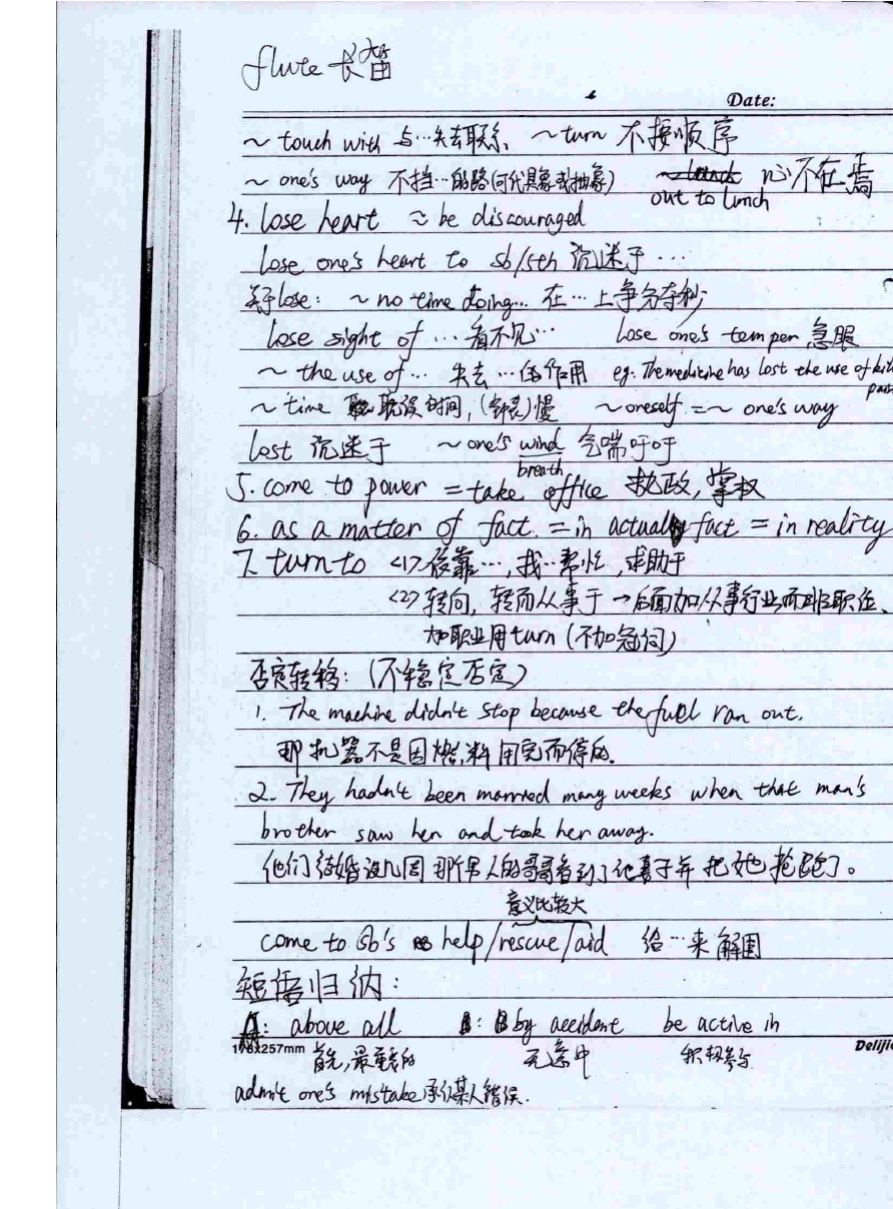 flute 长笛
Date:
~ touch with 与…失去联系、 ~ turn 不按顺序
~ one's way 不挡…的路(可代具象或抽象) 心不在焉
out to lunch
4. lose heart ≈ be discouraged
lose one's heart to sb/sth 沉迷于…
关于lose: ~ no time doing… 在…上争分夺秒
lose sight of … 看不见… lose one's temper
~ the use of … 失去…的作用 eg. The medicine has lost the use of
~ time 耽误时间,(钟表)慢 ~ oneself = ~ one's way
lost 沉迷于 ~ one's wind 气喘吁吁
breath
5. come to power = take office 执政,掌权
6. as a matter of fact = in actual fact = in reality
7. turn to <1>依靠…,找…帮忙,求助于
<2>转向,转而从事于→后面加从事行业而非职位、
加职业用turn (不加冠词)
否定转移:(不稳定否定)
1. The machine didn't stop because the fuel ran out.
那机器不是因燃料用完而停的.
2. They hadn't been married many weeks when that man's
brother saw her and took her away.
他们结婚没几周那个男人的哥哥看到了他妻子并把她抢跑了。
意义比较大
come to sb's help/rescue/aid 给…来解围
短语归纳:
A: above all B: by accident be active in
176x257mm 首先,最重要的 无意中 积极参与
admit one's mistake 承认某人错误.